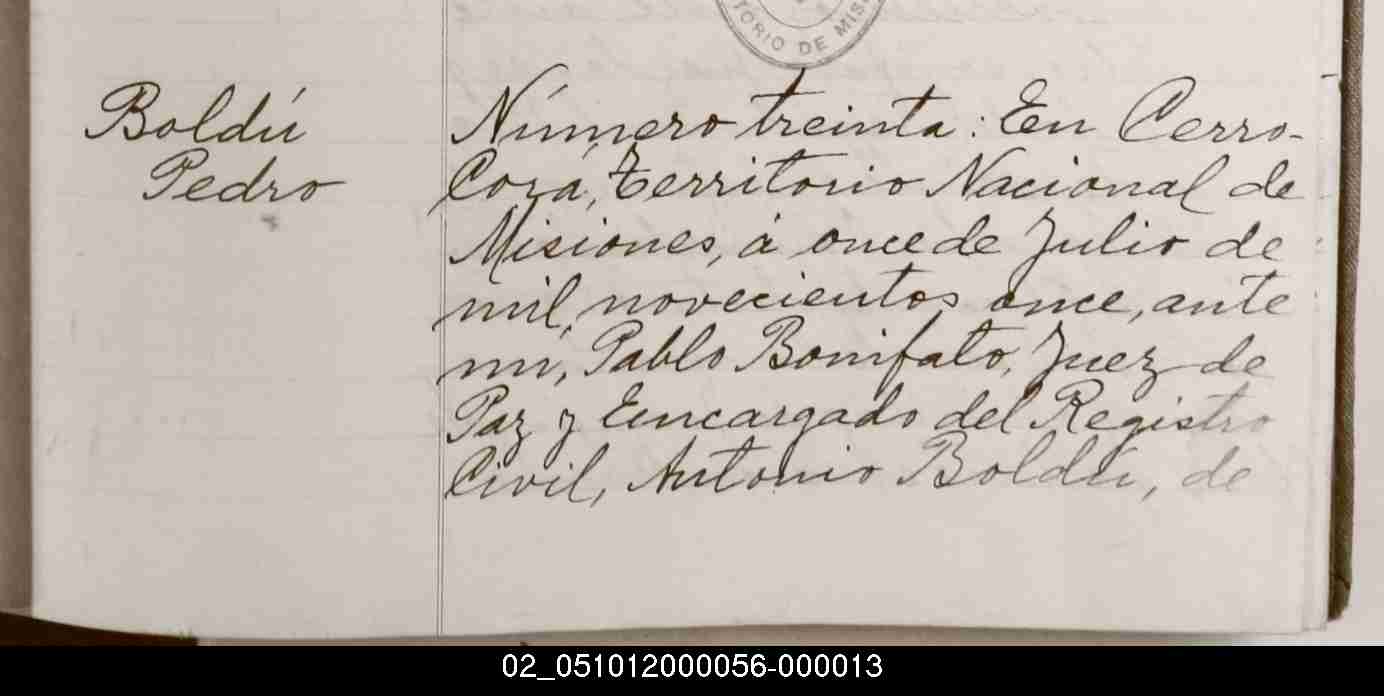 TORIO DE MIS
Boldú
Pedro
Número treinta: En Cerro-
Corá, Territorio Nacional de
Misiones, á once de Julio de
mil novecientos once, ante
mí, Pablo Bonifato, Juez de
Paz y Encargado del Registro
Civil, Antonio Boldú, de
02_051012000056-000013